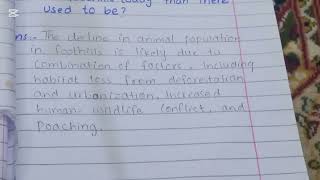 today than there
used to be?
ns.. The decline in animal population
in foothills is likely due to
combination of factors, including
habitat loss from deforestation
and urbanization, increased
human-wildlife conflict, and
poaching.